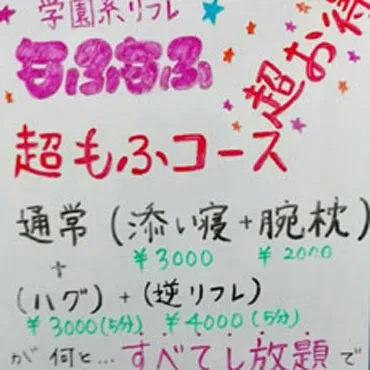 学園系リフレ
もふもふ
超お得
超もふコース
通常(添い寝+腕枕)
¥3000 ¥2000
+
(ハグ)+(逆リフレ)
¥3000(5分) ¥4000(5分)
が何と…すべてし放題で